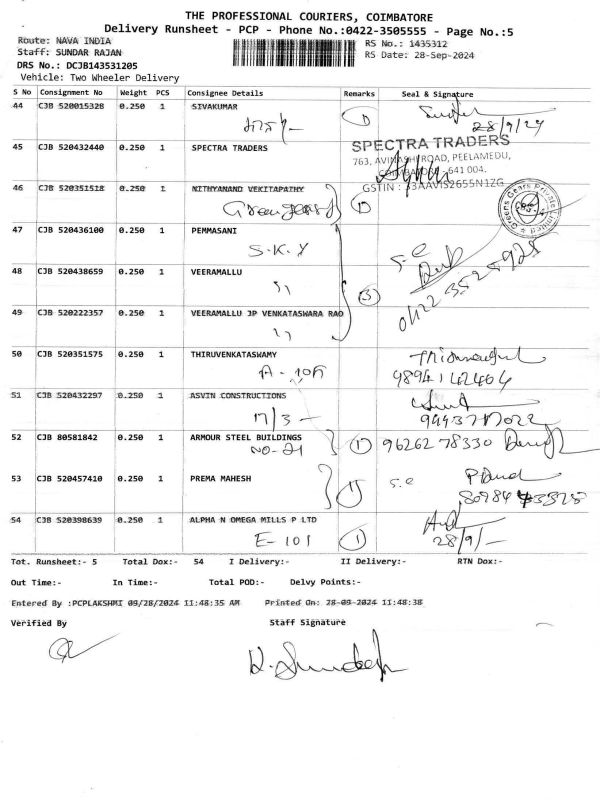 THE PROFESSIONAL COURIERS, COIMBATORE
Delivery Runsheet - PCP - Phone No.:0422-3505555 - Page No.:5
Route: NAVA INDIA
RS No.: 1435312
Staff: SUNDAR RAJAN
RS Date: 28-Sep-2024
DRS No.: DCJB143531205
Vehicle: Two Wheeler Delivery
S No Consignment No Weight PCS Consignee Details Remarks Seal & Signature
44 CJB 520015328 0.250 1 SIVAKUMAR
28/9/24
45 CJB 520432440 0.250 1 SPECTRA TRADERS
SPECTRA TRADERS
763, AVINASHI ROAD, PEELAMEDU,
COIMBATORE - 641 004.
GSTIN : 33AAVIS2655N1ZG
46 CJB 520351528 0.250 1 NITHYANAND VEKITAPATHY
Greens Gears Private Limited
47 CJB 520436100 0.250 1 PEMMASANI
S.K.Y
S.e
48 CJB 520438659 0.250 1 VEERAMALLU
11
3
0422 3525925
49 CJB 520222357 0.250 1 VEERAMALLU JP VENKATASWARA RAO
11
50 CJB 520351575 0.250 1 THIRUVENKATASWAMY
A - 10A
9894142404
51 CJB 520432297 0.250 1 ASVIN CONSTRUCTIONS
17/3 -
9443717022
52 CJB 80581842 0.250 1 ARMOUR STEEL BUILDINGS
NO-21
1
96262 78330
53 CJB 520457410 0.250 1 PREMA MAHESH
1
S.e
54 CJB 520398639 0.250 1 ALPHA N OMEGA MILLS P LTD
E-101
1
28/9/-
Tot. Runsheet:- 5 Total Dox:- 54 I Delivery:- II Delivery:- RTN Dox:-
Out Time:- In Time:- Total POD:- Delvy Points:-
Entered By :PCPLAKSHMI 09/28/2024 11:48:35 AM Printed On: 28-09-2024 11:48:38
Verified By Staff Signature